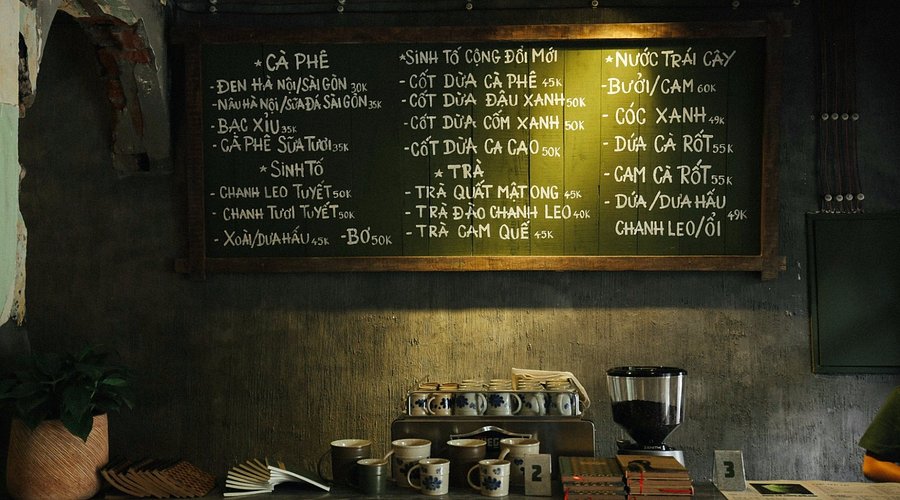 *CÀ PHÊ
-ĐEN HÀ NỘI/SÀI GÒN 30K
-NÂU HÀ NỘI/SỮA ĐÁ SÀI GÒN 35K
-BẠC XỈU 35K
-CÀ PHÊ SỮA TƯƠI 35K
*SINH TỐ
-CHANH LEO TUYẾT 50K
-CHANH TƯƠI TUYẾT 50K
-XOÀI/DƯA HẤU 45K -BƠ 50K
*SINH TỐ CỘNG ĐỔI MỚI
-CỐT DỪA CÀ PHÊ 45K
-CỐT DỪA ĐẬU XANH 50K
-CỐT DỪA CỐM XANH 50K
-CỐT DỪA CA CAO 50K
*TRÀ
-TRÀ QUẤT MẬT ONG 45K
-TRÀ ĐÀO CHANH LEO 40K
-TRÀ CAM QUẾ 45K
*NƯỚC TRÁI CÂY
-BƯỞI/CAM 60K
-CÓC XANH 49K
-DỨA CÀ RỐT 55K
-CAM CÀ RỐT 55K
-DỨA/DƯA HẤU
CHANH LEO/ỔI 49K
2
3